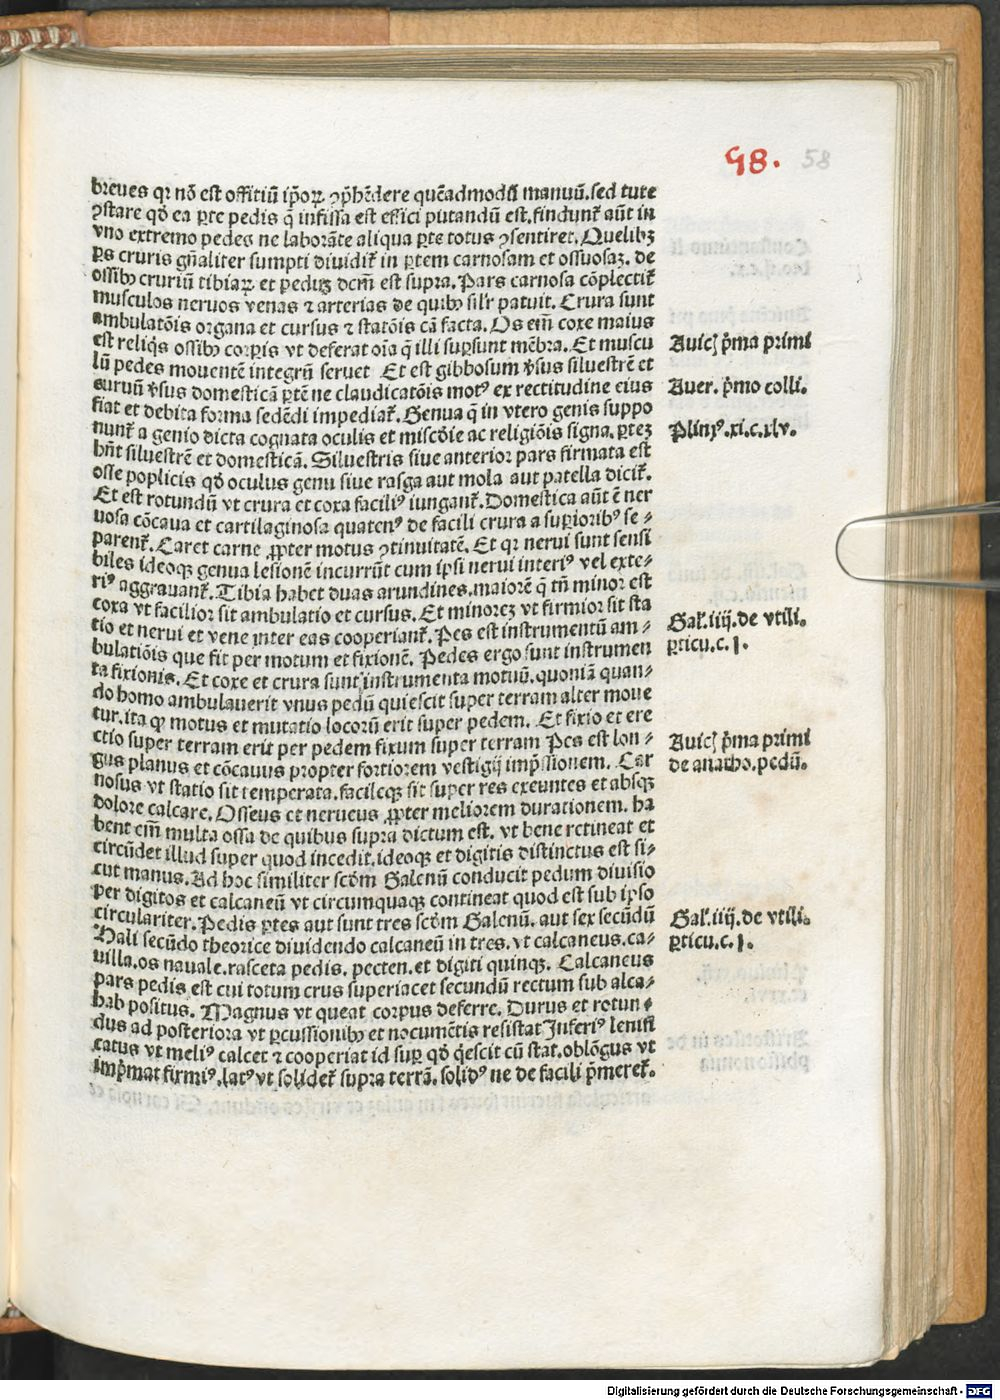 58. 58
breues qr nō est offitiū ip̄oꝝ ꝯp̄hēdere quēadmodū manuū. sed tute
ꝯstare qd̄ ea ꝑte pedis q̄ infissa est effici putandū est. findunt᷑ aūt in
vno extremo pedes ne laborāte aliqua ꝑte totus ꝯsentiret. Quelibꝫ
ꝑs cruris gn̄aliter sumpti diuidit᷑ in ꝑtem carnosam et ossuosaꝫ. de
ossibꝰ cruriū tibiaꝝ et peduꝫ dcm̄ est supra. Pars carnosa cōplectit᷑
musculos neruos venas ⁊ arterias de quibꝰ sil'r patuit. Crura sunt
ambulatōis organa et cursus ⁊ statōis cā facta. Os eīm coxe maius
est reliqs ossibꝰ corpis vt deferat oīa q̄ illi suꝑsunt mēbra. Et muscu
lū pedes mouentē integrū seruet Et est gibbosum v̄sus siluestrē et
curuū v̄sus domesticā ꝑtē ne claudicatōis motꝰ ex rectitudine eius
fiat et debita forma sedēdi impediat᷑. Genua q̄ in vtero genis suppo
nunt᷑ a genio dicta cognata oculis et miscd̄ie ac religiōis signa. ꝑteꝫ
hn̄t siluestrē et domesticā. Siluestris siue anterior pars firmata est
osse poplicis qd̄ oculus genu siue rasga aut mola aut patella dicit᷑.
Et est rotundū vt crura et coxa faciliꝰ iungant᷑. Domestica aūt ē ner
uosa cōcaua et cartilaginosa quatenꝰ de facili crura a suꝑioribꝰ se⸗
parent᷑. Caret carne ꝓpter motus ꝯtinuitatē. Et qr nerui sunt sensi
biles ideoqꝫ genua lesionē incurrūt cum ipsi nerui interiꝰ vel exte⸗
riꝰ aggrauant᷑. Tibia habet duas arundines. maiorē q̄ tn̄ minor est
coxa vt facilior sit ambulatio et cursus. Et minoreꝫ vt firmior sit sta
tio et nerui et vene inter eas cooperiant᷑. Pes est instrumentū am⸗
bulatiōis que fit per motum et fixionē. Pedes ergo sunt instrumen
ta fixionis. Et coxe et crura sunt instrumenta motuū. quoniā quan⸗
do homo ambulauerit vnus pedū quiescit super terram alter moue
tur. ita ꝙ motus et mutatio locorū erit super pedem. Et fixio et ere
ctio super terram erit per pedem fixum super terram Pes est lon⸗
gus planus et cōcauus propter fortiorem vestigij imp̄ssionem. Car
nosus vt statio sit temperata. facileqꝫ sit super res exeuntes et absqꝫ
dolore calcare. Osseus et nerueus ꝓpter meliorem durationem. ha
bent eīm multa ossa de quibus supra dictum est. vt bene retineat et
circūdet illud super quod incedit. ideoqꝫ et digitis distinctus est si⸗
cut manus. Ad hoc similiter scd̄m Galenū conducit pedum diuisio
per digitos et calcaneū vt circumquaqꝫ contineat quod est sub ip̄so
circulariter. Pedis ꝑtes aut sunt tres scd̄m Galenū. aut sex secūdū
Hali secūdo theorice diuidendo calcaneū in tres. vt calcaneus. ca⸗
uilla. os nauale. rasceta pedis. pecten. et digiti quinqꝫ. Calcaneus
pars pedis est cui totum crus superiacet secundū rectum sub alca⸗
hab positus. Magnus vt queat corpus deferre. Durus et rotun⸗
dus ad posteriora vt ꝑcussionibꝰ et nocumētis resistat Inferiꝰ lenifi
catus vt meliꝰ calcet ⁊ cooperiat id suꝑ qd̄ q̇escit cū stat. oblōgus vt
imp̄mat firmiꝰ. latꝰ vt solidet᷑ supra terrā. solidꝰ ne de facili p̄meret᷑.
Auicꝫ p̄ma primi
Auer. p̄mo colli.
Plinꝰ. xi. c. xlv.
Gal'. iiij. de vtili.
ꝑticu. c. j.
Auicꝫ p̄ma primi
de anatho. pedū.
Gal'. iiij. de vtili.
ꝑticu. c. j.
Digitalisierung gefördert durch die Deutsche Forschungsgemeinschaft - DFG